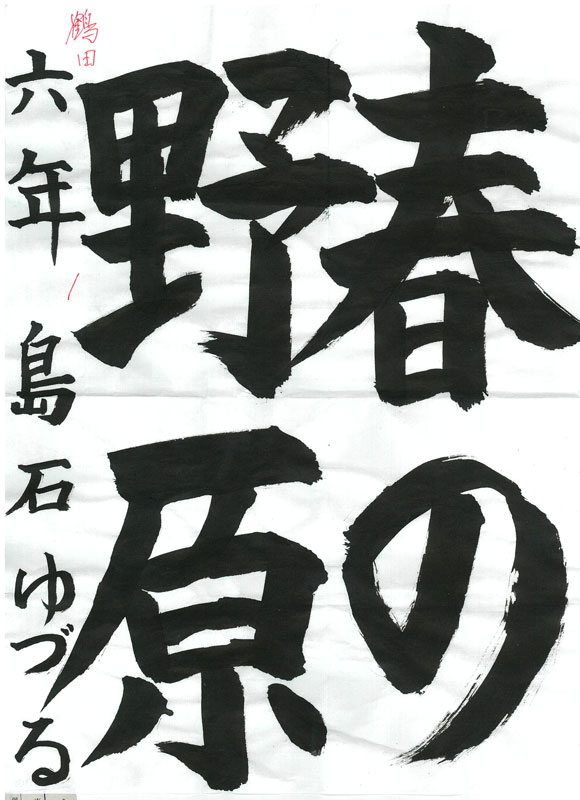 春の
野原
六年 島石ゆづる
鶴田